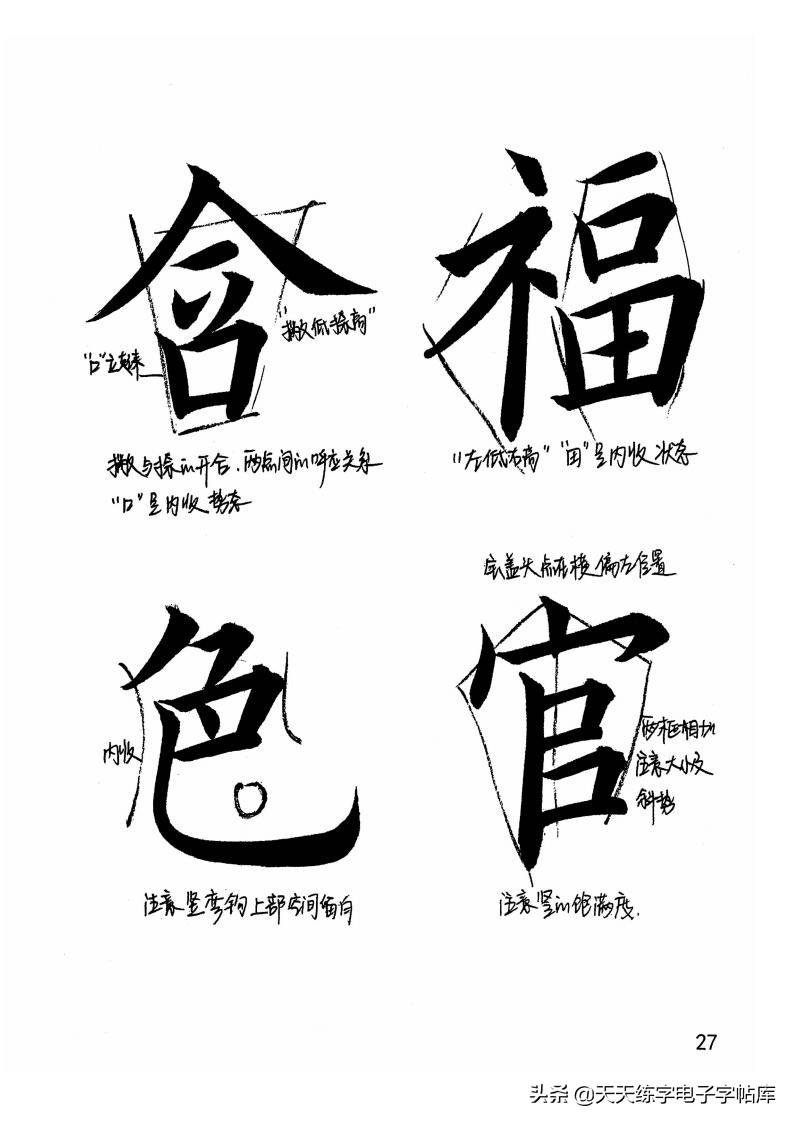 含
福
"撇低捺高"
撇与捺的开合.两点间的呼应关系
"口"是内收势态
"左低右高" "田"是内收状态
宝盖头点在横偏左位置
色
官
内收
两框相似
注意大小及
斜势
注意竖弯钩上部空间留白
注意竖的饱满度.
27
头条 @天天练字电子字帖库